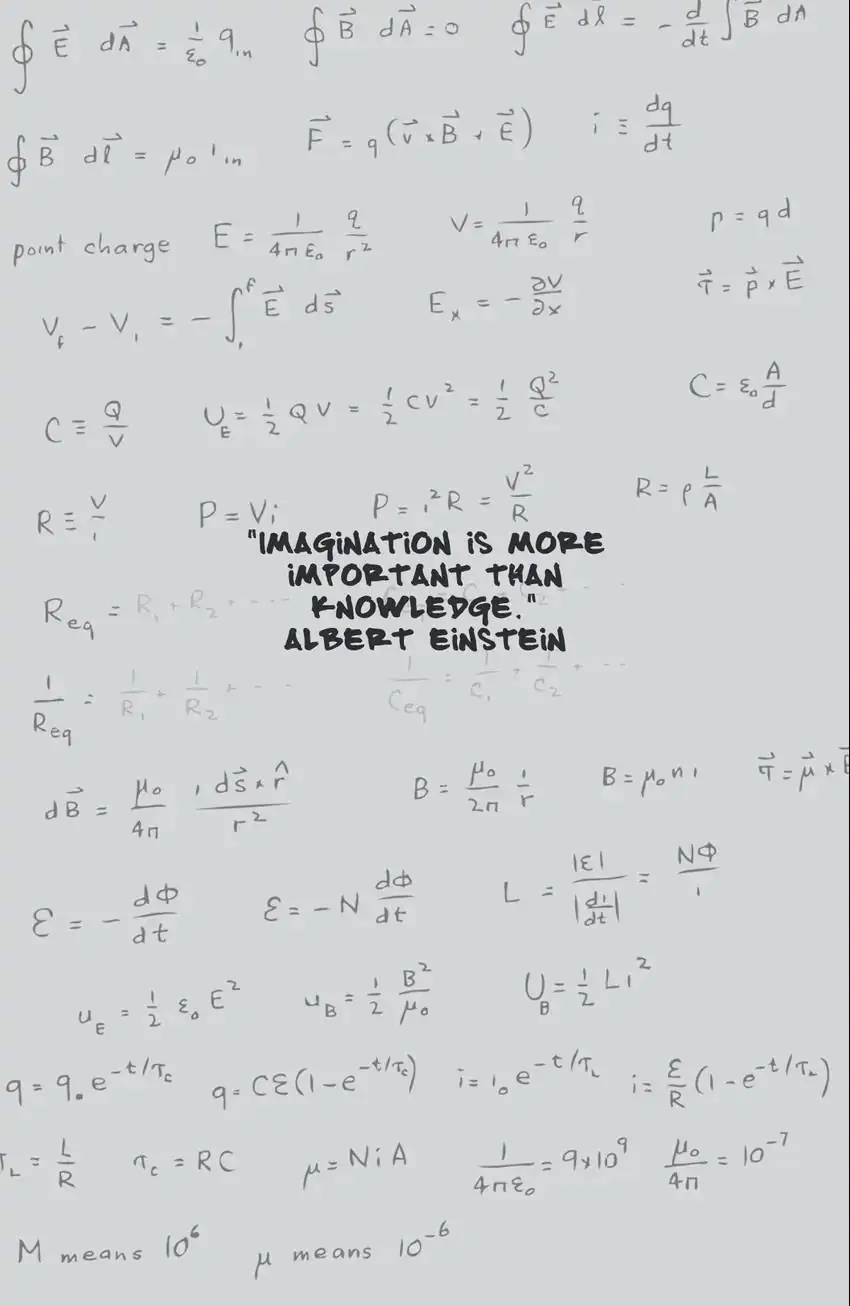 ∮ E⃗ dA⃗ = 1/ε₀ qᵢₙ ∮ B⃗ dA⃗ = 0 ∮ E⃗ dl⃗ = - d/dt ∫ B⃗ dA
∮ B⃗ dl⃗ = μ₀ iᵢₙ F⃗ = q (v⃗ × B⃗ + E⃗) i ≡ dq/dt
point charge E = 1/4πε₀ q/r² V = 1/4πε₀ q/r p = qd
V_f - V_i = - ∫ᵢᶠ E⃗ ds⃗ Eₓ = - ∂V/∂x τ⃗ = p⃗ × E⃗
C ≡ Q/V U_E = 1/2 QV = 1/2 CV² = 1/2 Q²/C C = ε₀ A/d
R ≡ V/i P = Vi P = i²R = V²/R R = ρ L/A
"IMAGINATION IS MORE
IMPORTANT THAN
KNOWLEDGE."
ALBERT EINSTEIN
R_eq = R₁ + R₂ + ...
1/R_eq = 1/R₁ + 1/R₂ + ... 1/C_eq = 1/C₁ + 1/C₂ + ...
dB⃗ = μ₀/4π i ds⃗ × r̂/r² B = μ₀/2π i/r B = μ₀ n i τ⃗ = μ⃗ × B
ℰ = - dΦ/dt ℰ = - N dΦ/dt L = |ℰ|/|di/dt| = NΦ/i
u_E = 1/2 ε₀ E² u_B = 1/2 B²/μ₀ U_B = 1/2 Li²
q = q₀ e^(-t/τ_C) q = Cℰ(1 - e^(-t/τ_C)) i = i₀ e^(-t/τ_L) i = ℰ/R (1 - e^(-t/τ_L))
τ_L = L/R τ_C = RC μ = NiA 1/4πε₀ = 9×10⁹ μ₀/4π = 10⁻⁷
M means 10⁶ μ means 10⁻⁶